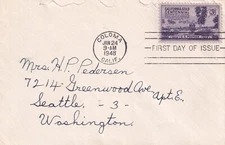 COLOMA
JAN 24
9-AM
1948
CALIF.
CALIFORNIA GOLD
CENTENNIAL
FIRST DAY OF ISSUE
Mrs. H. P. Pedersen
7214 Greenwood Ave Apt. E.
Seattle -3-
Washington.